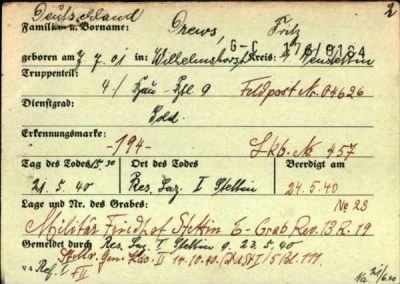 Deutschland 2
Familien- u. Vorname: Drews, Fritz
G-C 276/0184
geboren am 7.7.01 in: Wilhelmshorst Kreis:
Truppenteil: 4/ Bau-Btl 9 Feldpost Nr. 04626
Dienstgrad: Sold.
Erkennungsmarke: -194- Lkb. No 457
Tag des Todes 15.30 Ort des Todes Beerdigt am
21.5.40 Res. Laz. I Stettin 24.5.40
Lage und Nr. des Grabes: No 28
Militär Friedhof Stettin E-Grab Rev. 13 R. 19
Gemeldet durch Res. Laz. I Stettin 9. 22.5.40
Stellv. Gen. Kdo. II 14.10.40
V4 Ref. I